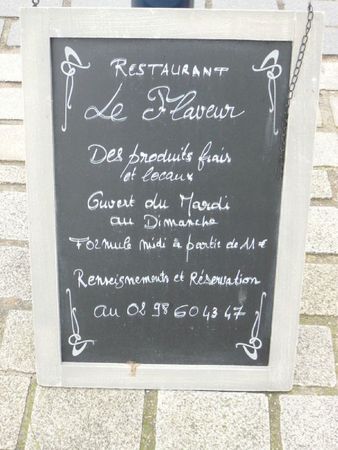 RESTAURANT
Le Flaveur
Des produits frais
et locaux
Ouvert du Mardi
au Dimanche
Formule midi à partir de 11€
Renseignements et Réservation
au 02 98 60 43 47